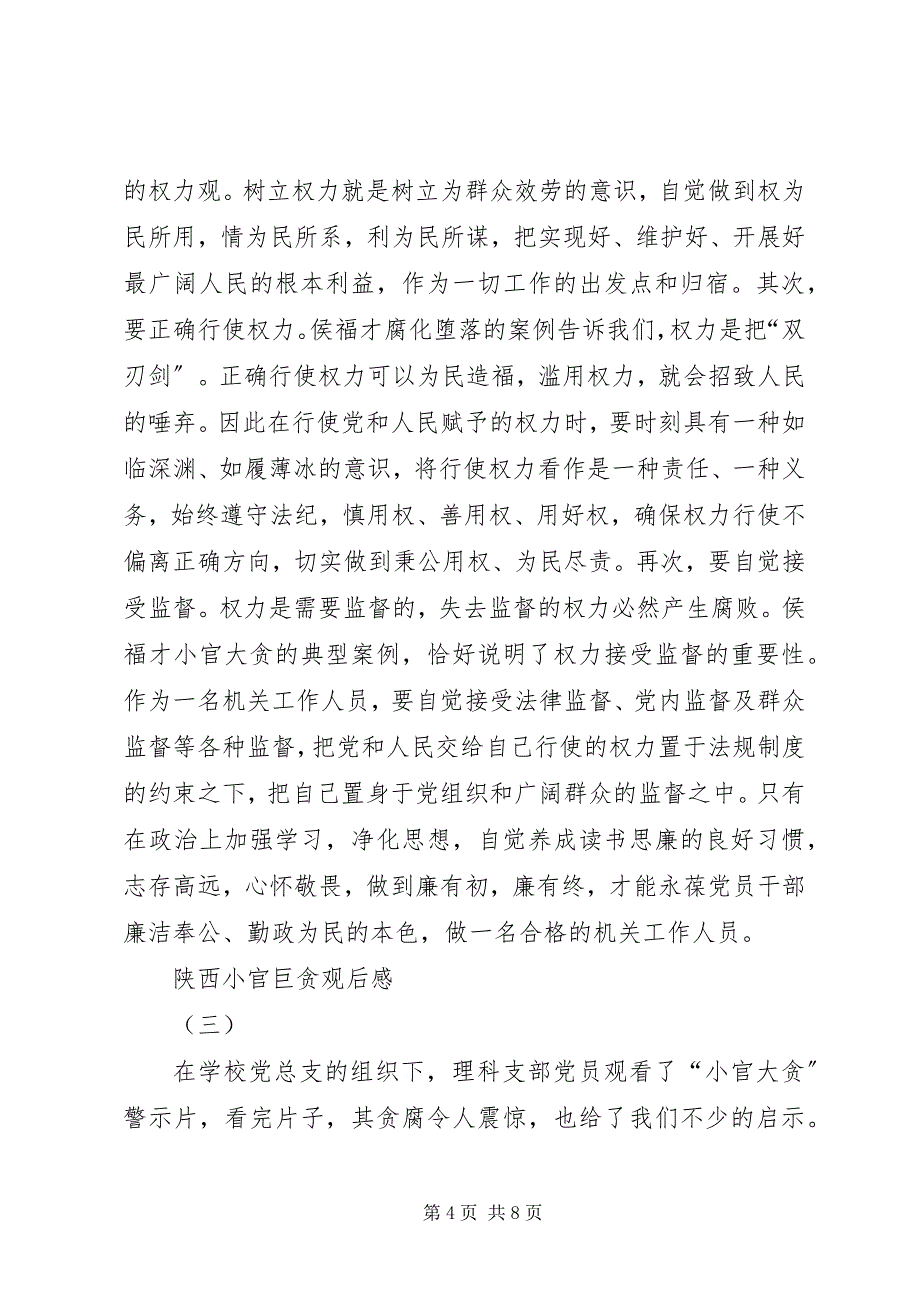 的权力观。树立权力就是树立为群众效劳的意识，自觉做到权为
民所用，情为民所系，利为民所谋，把实现好、维护好、开展好
最广阔人民的根本利益，作为一切工作的出发点和归宿。其次，
要正确行使权力。侯福才腐化堕落的案例告诉我们，权力是把“双
刃剑〞。正确行使权力可以为民造福，滥用权力，就会招致人民
的唾弃。因此在行使党和人民赋予的权力时，要时刻具有一种如
临深渊、如履薄冰的意识，将行使权力看作是一种责任、一种义
务，始终遵守法纪，慎用权、善用权、用好权，确保权力行使不
偏离正确方向，切实做到秉公用权、为民尽责。再次，要自觉接
受监督。权力是需要监督的，失去监督的权力必然产生腐败。侯
福才小官大贪的典型案例，恰好说明了权力接受监督的重要性。
作为一名机关工作人员，要自觉接受法律监督、党内监督及群众
监督等各种监督，把党和人民交给自己行使的权力置于法规制度
的约束之下，把自己置身于党组织和广阔群众的监督之中。只有
在政治上加强学习，净化思想，自觉养成读书思廉的良好习惯，
志存高远，心怀敬畏，做到廉有初，廉有终，才能永葆党员干部
廉洁奉公、勤政为民的本色，做一名合格的机关工作人员。
陕西小官巨贪观后感
（三）
在学校党总支的组织下，理科支部党员观看了“小官大贪〞
警示片，看完片子，其贪腐令人震惊，也给了我们不少的启示。
第 4 页 共 8 页